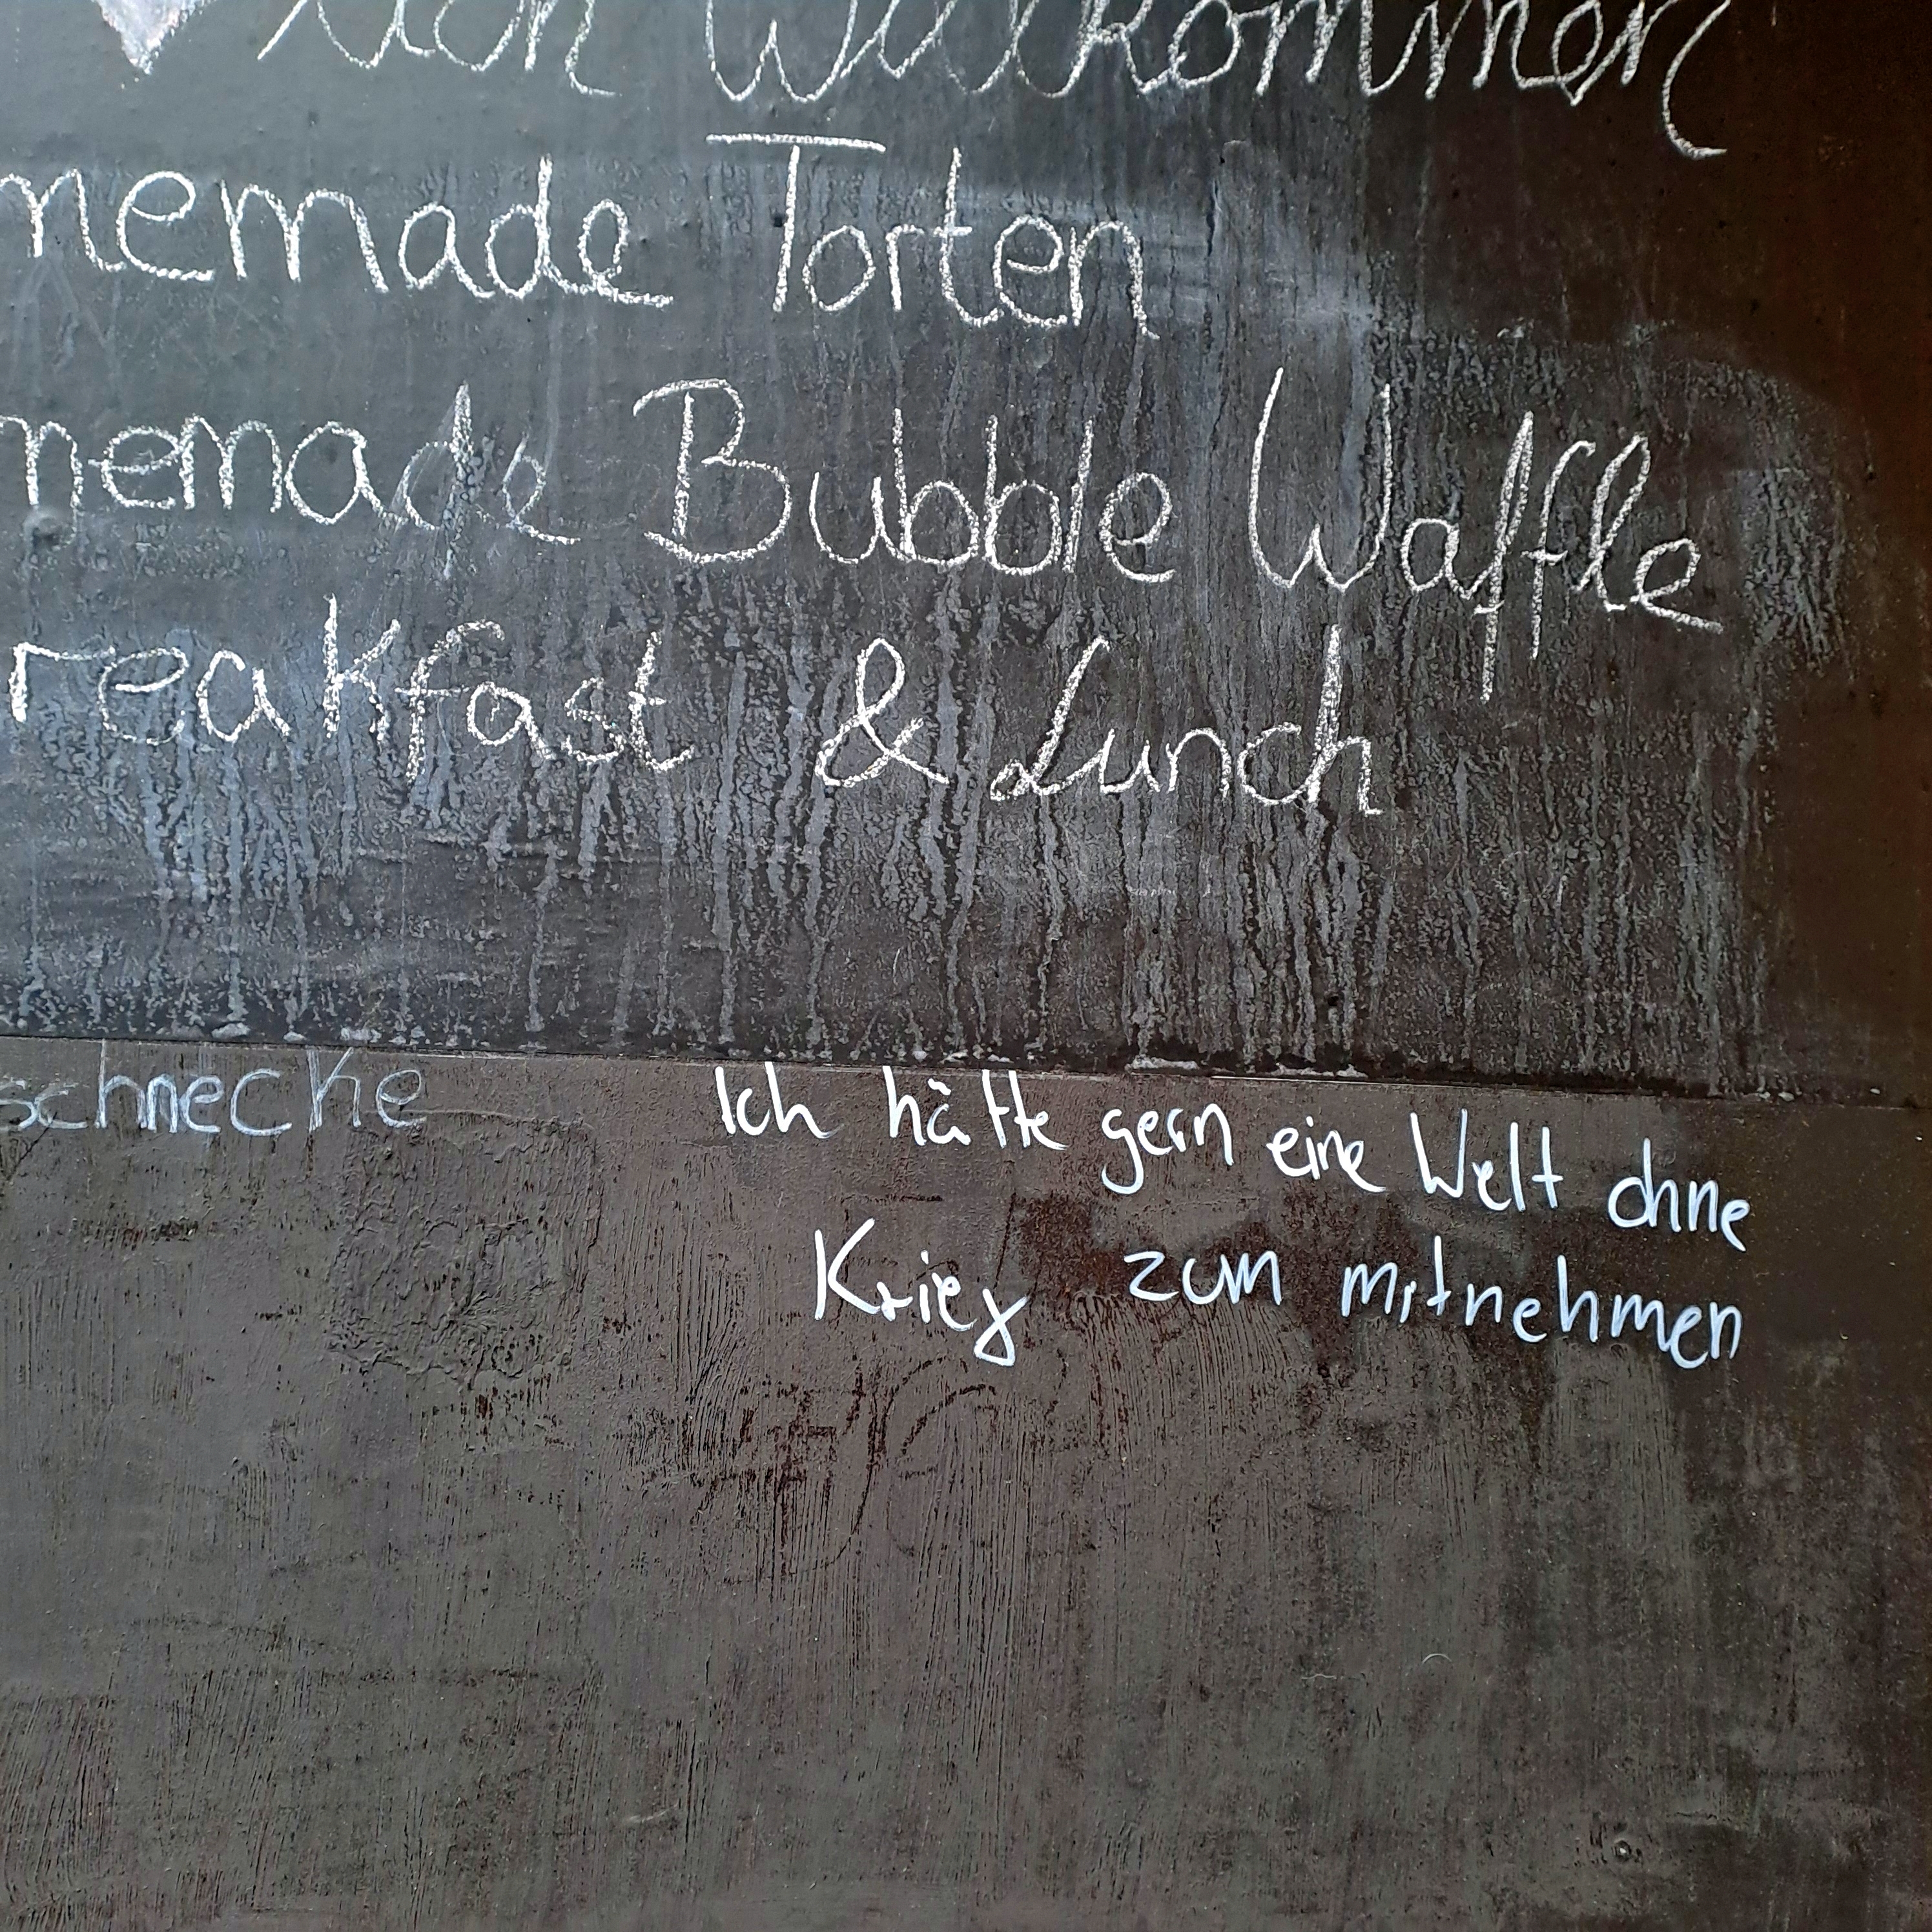 lich Willkommen
memade Torten
memade Bubble Waffle
reakfast & Lunch
schnecke
Ich hätte gern eine Welt ohne
Krieg zum mitnehmen